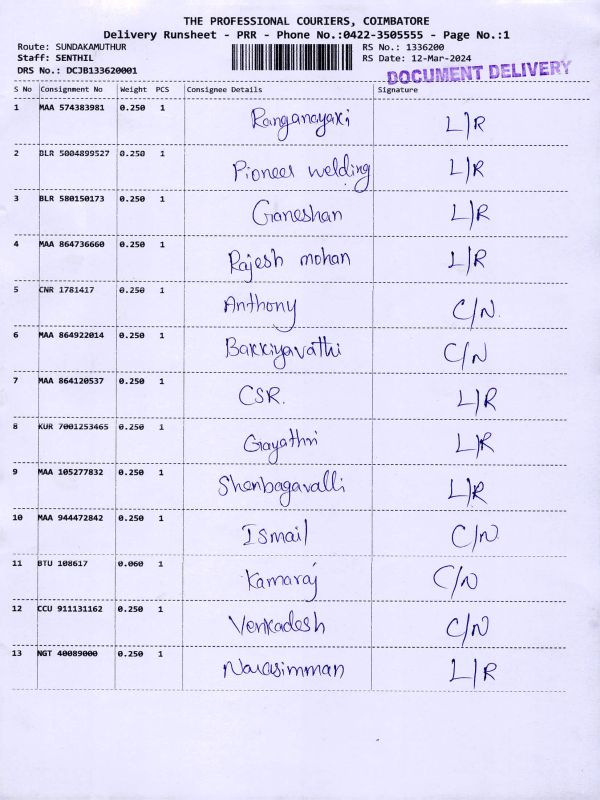 THE PROFESSIONAL COURIERS, COIMBATORE
Delivery Runsheet - PRR - Phone No.:0422-3505555 - Page No.:1
Route: SUNDAKAMUTHUR RS No.: 1336200
Staff: SENTHIL RS Date: 12-Mar-2024
DRS No.: DCJB133620001 DOCUMENT DELIVERY
S No Consignment No Weight PCS Consignee Details Signature
1 MAA 574383981 0.250 1 Ranganayaki L/R
2 BLR 5004899527 0.250 1 Pioneer welding L/R
3 BLR 580150173 0.250 1 Ganeshan L/R
4 MAA 864736660 0.250 1 Rajesh mohan L/R
5 CNR 1781417 0.250 1 Anthony C/N.
6 MAA 864922014 0.250 1 Bakkiyavathi C/N
7 MAA 864120537 0.250 1 CSR. L/R
8 KUR 7001253465 0.250 1 Gayathri L/R
9 MAA 105277832 0.250 1 Shenbagavalli L/R
10 MAA 944472842 0.250 1 Ismail C/N
11 BTU 108617 0.060 1 Kamaraj C/N
12 CCU 911131162 0.250 1 Venkadesh C/N
13 NGT 40089000 0.250 1 Narasimman L/R